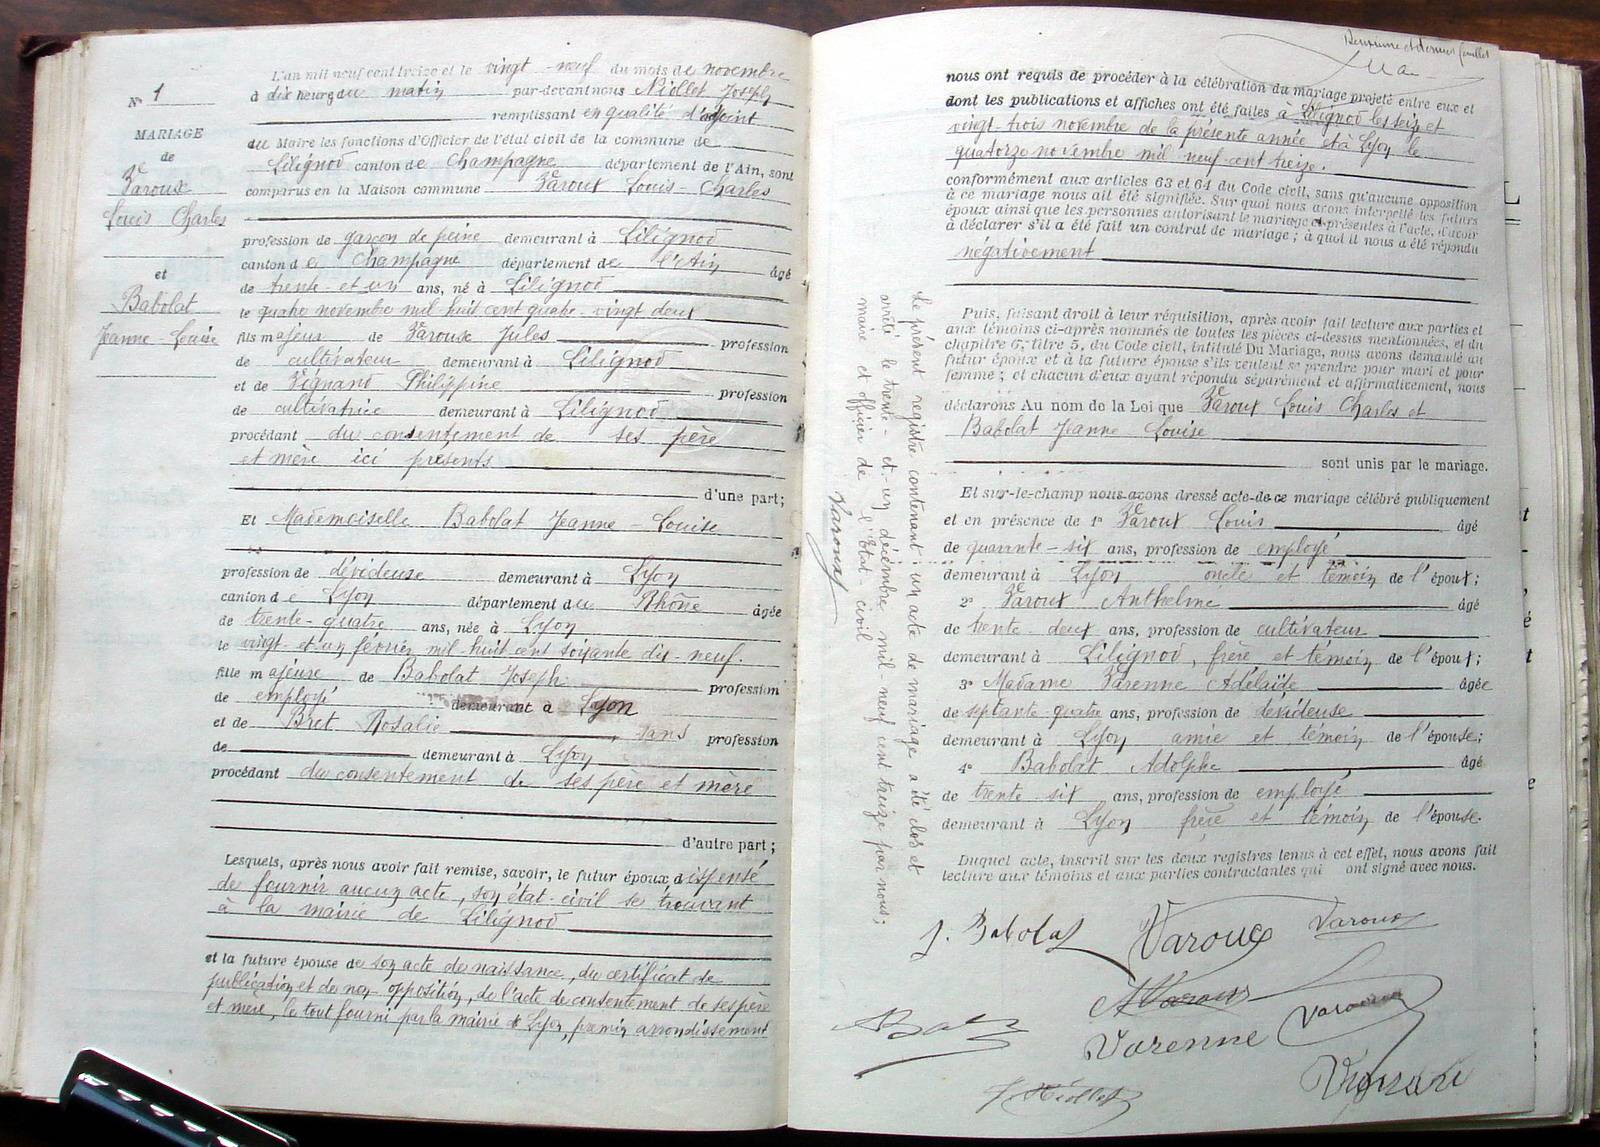 N° 1
MARIAGE
de
Varoux
Louis Charles
et
Babolat
Jeanne-Louise
L'an mil neuf cent treize et le vingt-neuf du mois de novembre
à dix heures du matin par-devant nous Niollet Joseph
remplissant en qualité d'adjoint
au Maire les fonctions d'Officier de l'état civil de la commune de
Lilignod canton de Champagne département de l'Ain, sont
comparus en la Maison commune Varoux Louis-Charles
profession de garçon de peine demeurant à Lilignod
canton de Champagne département de l'Ain âgé
de trente-et-un ans, né à Lilignod
le quatre novembre mil huit cent quatre-vingt deux
fils majeur de Varoux Jules profession
de cultivateur demeurant à Lilignod
et de Vignand Philippine profession
de cultivatrice demeurant à Lilignod
procédant du consentement de ses père
et mère ici présents
d'une part;
Et Mademoiselle Babolat Jeanne-Louise
profession de dévideuse demeurant à Lyon
canton de Lyon département du Rhône âgée
de trente-quatre ans, née à Lyon
le vingt-et-un février mil huit cent soixante dix-neuf.
fille majeure de Babolat Joseph profession
de employé demeurant à Lyon
et de Bret Rosalie sans profession
de demeurant à Lyon
procédant du consentement de ses père et mère
d'autre part;
Lesquels, après nous avoir fait remise, savoir, le futur époux dispensé
de fournir aucun acte, son état-civil se trouvant
à la mairie de Lilignod
et la future épouse de son acte de naissance, du certificat de
publication et de non opposition, de l'acte de consentement de ses père
et mère, le tout fourni par la mairie de Lyon, premier arrondissement
Deuxième et dernier feuillet
nous ont requis de procéder à la célébration du mariage projeté entre eux et
dont les publications et affiches ont été faites à Lilignod les seize et
vingt-trois novembre de la présente année et à Lyon le
quatorze novembre mil neuf cent treize.
conformément aux articles 63 et 64 du Code civil, sans qu'aucune opposition
à ce mariage nous ait été signifiée. Sur quoi nous avons interpellé les futurs
époux ainsi que les personnes autorisant le mariage et présentes à l'acte, d'avoir
à déclarer s'il a été fait un contrat de mariage; à quoi il nous a été répondu
négativement
Puis, faisant droit à leur réquisition, après avoir fait lecture aux parties et
aux témoins ci-après nommés de toutes les pièces ci-dessus mentionnées, et du
chapitre 6, titre 5, du Code civil, intitulé Du Mariage, nous avons demandé au
futur époux et à la future épouse s'ils veulent se prendre pour mari et pour
femme; et chacun d'eux ayant répondu séparément et affirmativement, nous
déclarons Au nom de la Loi que Varoux Louis Charles et
Babolat Jeanne Louise
sont unis par le mariage.
Et sur-le-champ nous avons dressé acte de ce mariage célébré publiquement
et en présence de 1° Varoux Louis âgé
de quarante-six ans, profession de employé
demeurant à Lyon oncle et témoin de l'époux;
2° Varoux Anthelme âgé
de trente-deux ans, profession de cultivateur
demeurant à Lilignod, frère et témoin de l'époux;
3° Madame Varenne Adélaïde âgée
de septante-quatre ans, profession de dévideuse
demeurant à Lyon amie et témoin de l'épouse;
4° Babolat Adolphe âgé
de trente six ans, profession de employé
demeurant à Lyon frère et témoin de l'épouse.
Duquel acte, inscrit sur les deux registres tenus à cet effet, nous avons fait
lecture aux témoins et aux parties contractantes qui ont signé avec nous.
J. Babolat Varoux Varoux
A Varoux
Varenne Varoux
J. Niollet
Le présent registre contenant un acte de mariage a été clos et
arrêté le trente-et-un décembre mil-neuf cent treize par nous,
maire et officier de l'Etat civil
Varoux